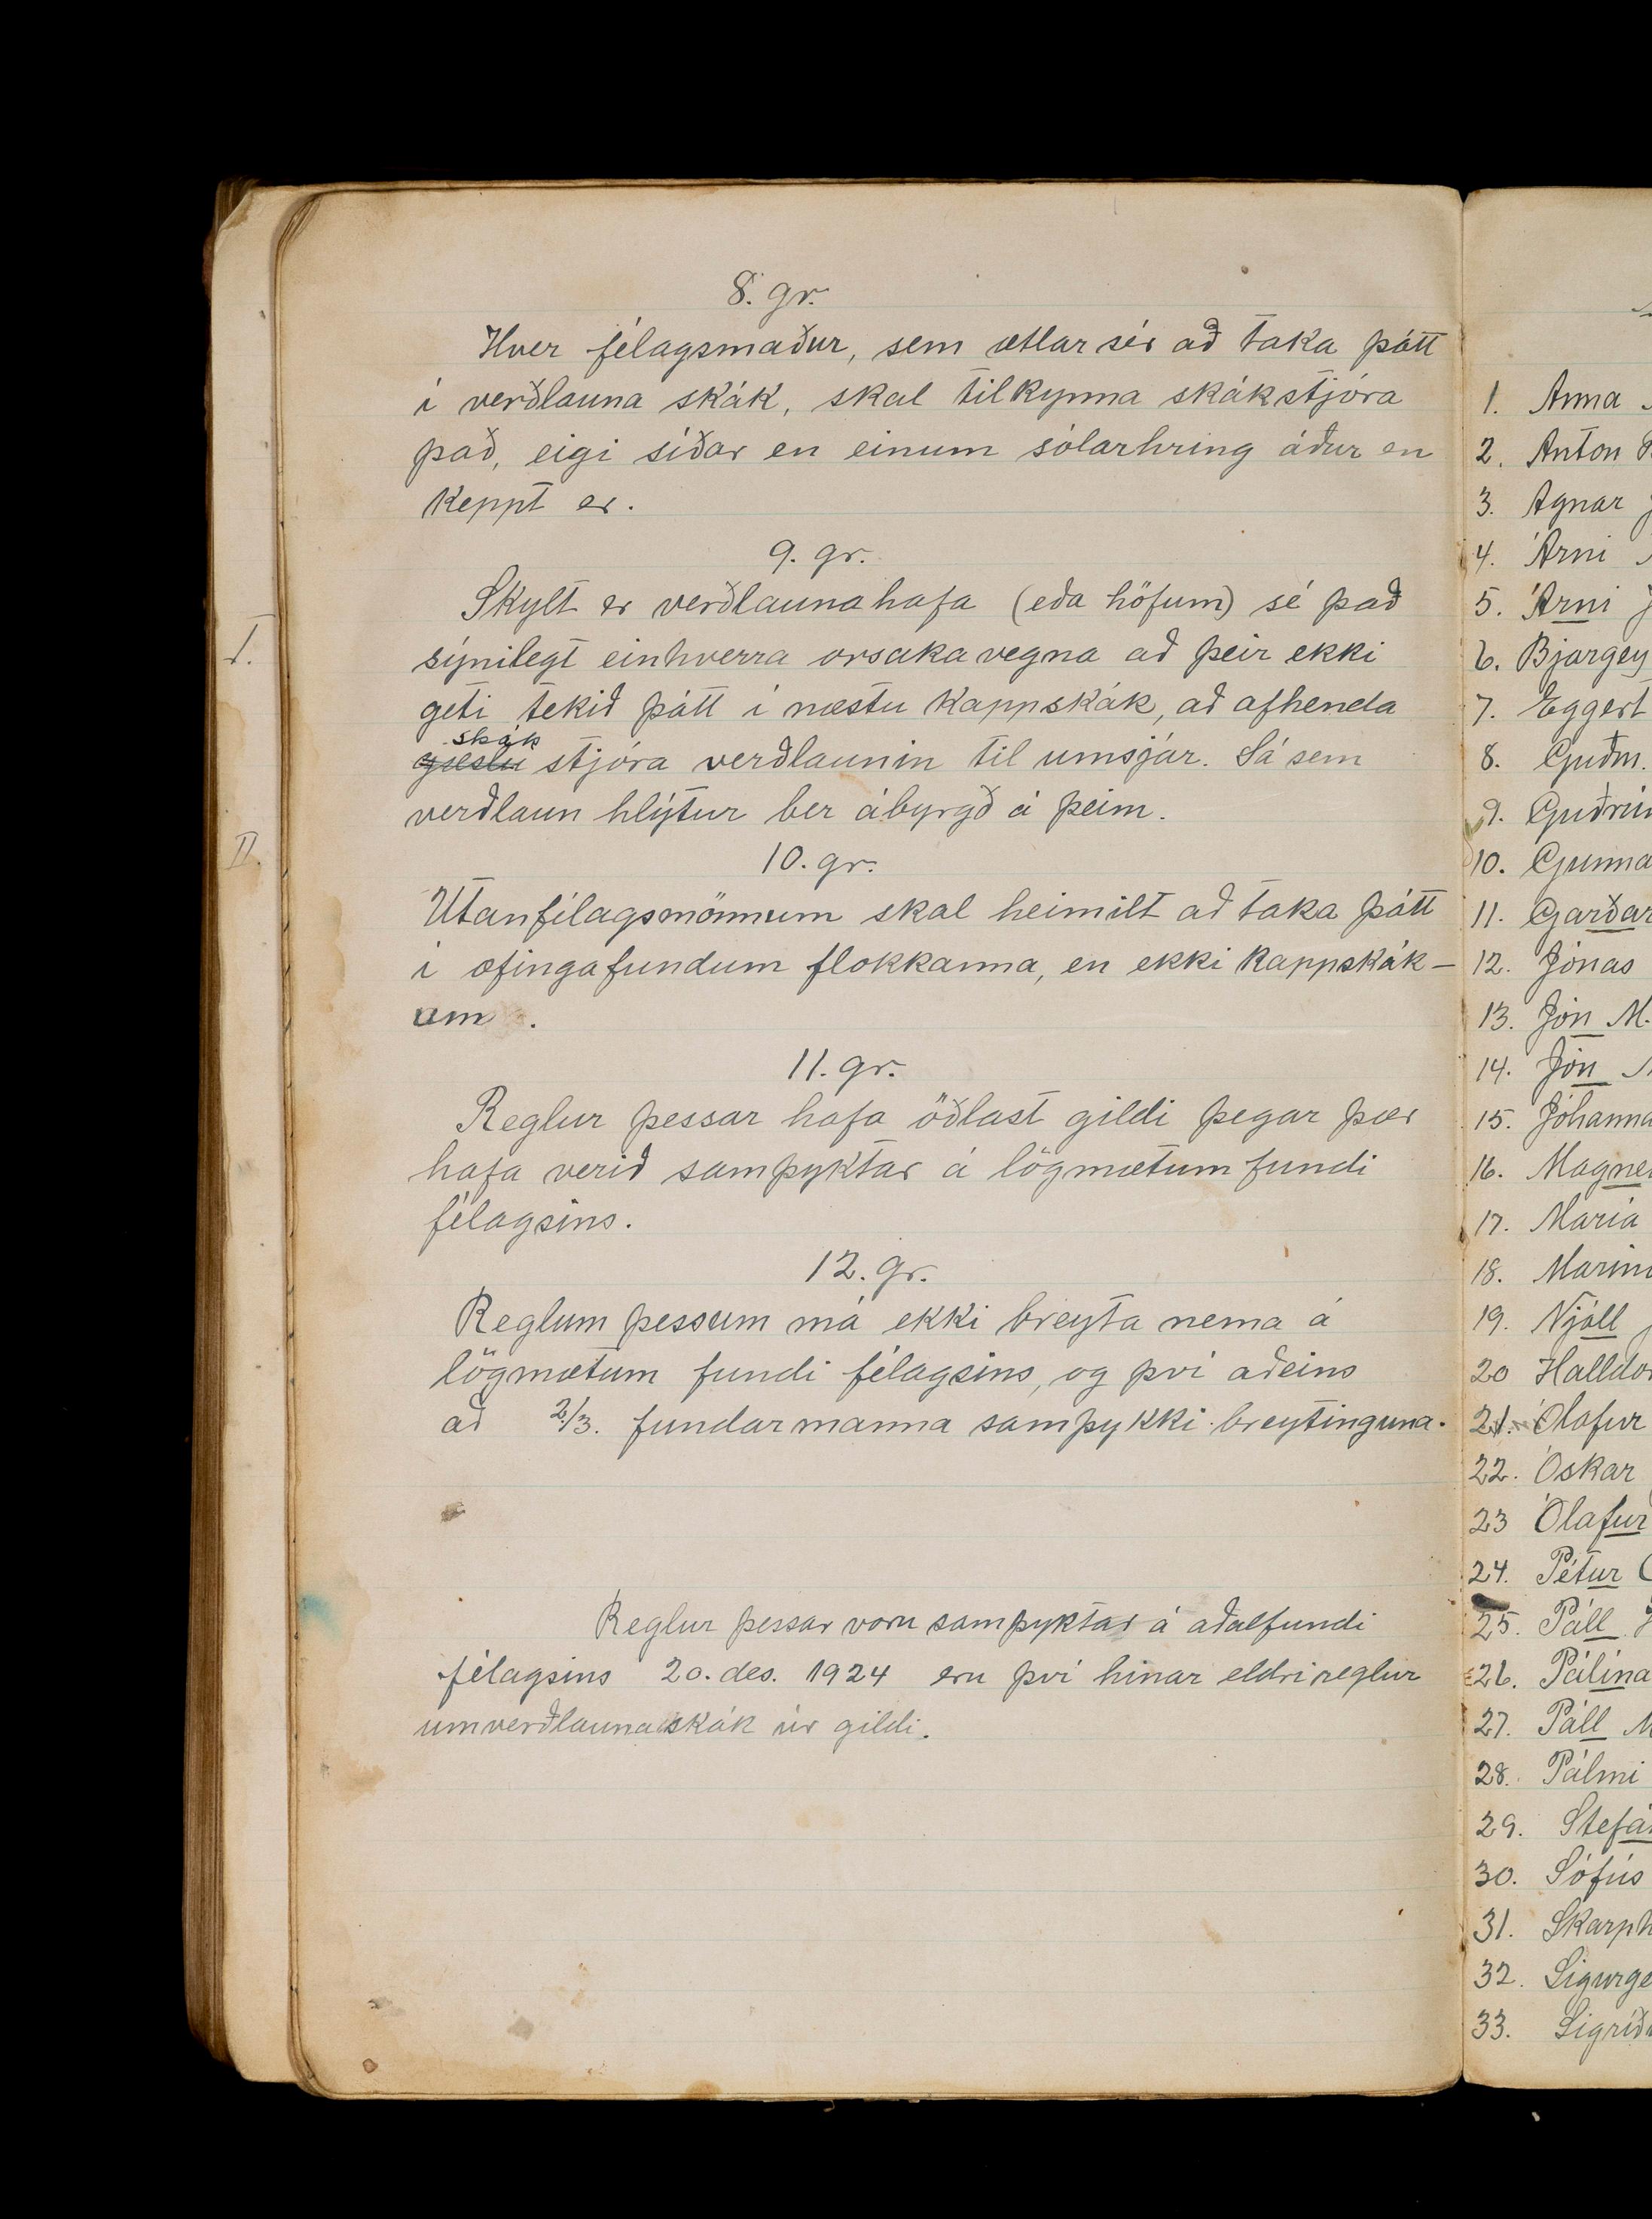 8. gr.
Hver félagsmaður, sem ætlar sér að taka þátt
í verðlauna skák, skal tilkynna skákstjóra
það, eigi síðar en einum sólarhring áður en
keppt er.
9. gr.
Skylt er verðlaunahafa (eða höfum) sé það
sýnilegt einhverra orsaka vegna að þeir ekki
geti tekið þátt í næstu kappskák, að afhenda
skák
gæslu stjóra verðlaunin til umsjár. Sá sem
verðlaun hlýtur ber ábyrgð á þeim.
10. gr.
Utanfélagsmönnum skal heimilt að taka þátt
í æfingafundum flokkanna, en ekki kappskák-
um .
11. gr.
Reglur þessar hafa öðlast gildi þegar þær
hafa verið samþyktar á lögmætum fundi
félagsins.
12. gr.
Reglum þessum má ekki breyta nema á
lögmætum fundi félagsins, og því aðeins
að 2/3. fundarmanna samþykki breytinguna.
Reglur þessar voru samþyktar á aðalfundi
félagsins 20. des. 1924 eru því hinar eldri reglur
um verðlaunaskák úr gildi.
I.
II.
1. Anna
2. Anton
3. Agnar
4. Árni
5. Árni
6. Bjargey
7. Eggert
8. Guðm.
9. Guðrún
10. Gunna
11. Garðar
12. Jónas
13. Jón M.
14. Jón
15. Jóhanna
16. Magne
17. María
18. Marin
19. Njáll
20 Halldór
21. Ólafur
22. Óskar
23 Ólafur
24. Pétur
25. Páll
26. Pálína
27. Páll M
28. Pálmi
29. Stefá
30. Sófús
31. Skarph
32. Sigurge
33. Sigríð